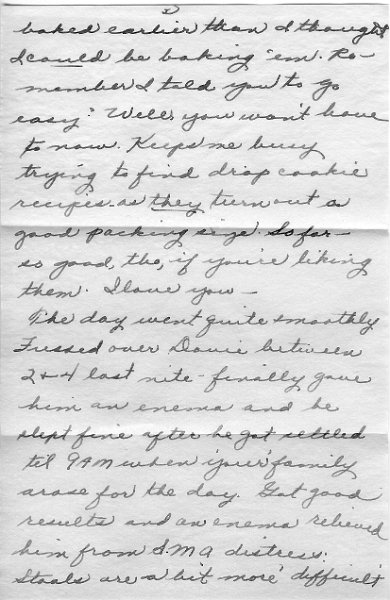 2
baked earlier than I thought
I could be baking 'em. Re-
member I told you to go
easy? Well, you won't have
to now. Keeps me busy
trying to find drop cookie
recipes as they turn out a
good packing size. So far -
so good, tho, if you're liking
them. I love you -
The day went quite smoothly
Fussed over Davie between
2 & 4 last nite - finally gave
him an enema and he
slept fine after he got settled
til 9 AM when your family
arose for the day. Got good
results and an enema relieved
him from S.M.A distress.
Stools are a bit more difficult